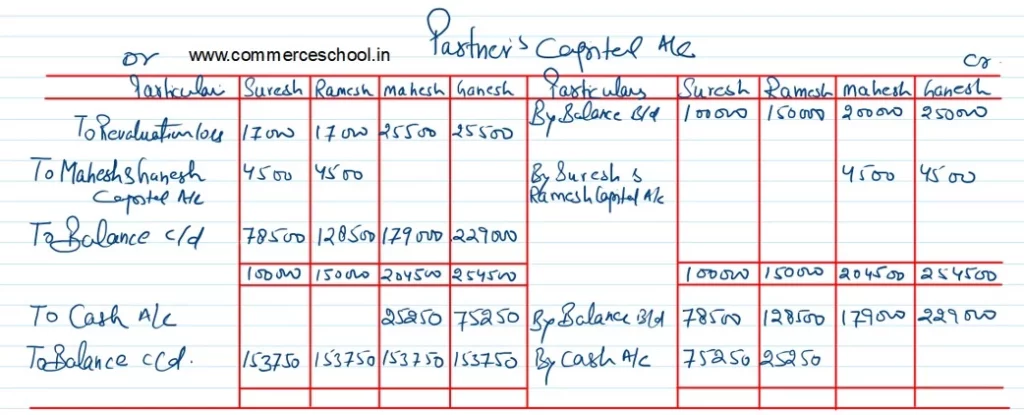 Partner's Capital A/c
Dr www.commerceschool.in Cr.
Particulars Suresh Ramesh Mahesh Ganesh Particulars Suresh Ramesh Mahesh Ganesh
To Revaluation loss 17000 17000 25500 25500 By Balance B/d 100000 150000 200000 250000
To Mahesh & Ganesh 4500 4500 By Suresh & 4500 4500
Capital A/c Ramesh Capital A/c
To Balance c/d 78500 128500 179000 229000
100000 150000 204500 254500 100000 150000 204500 254500
To Cash A/c 25250 75250 By Balance B/d 78500 128500 179000 229000
To Balance c/d. 153750 153750 153750 153750 By Cash A/c 75250 25250